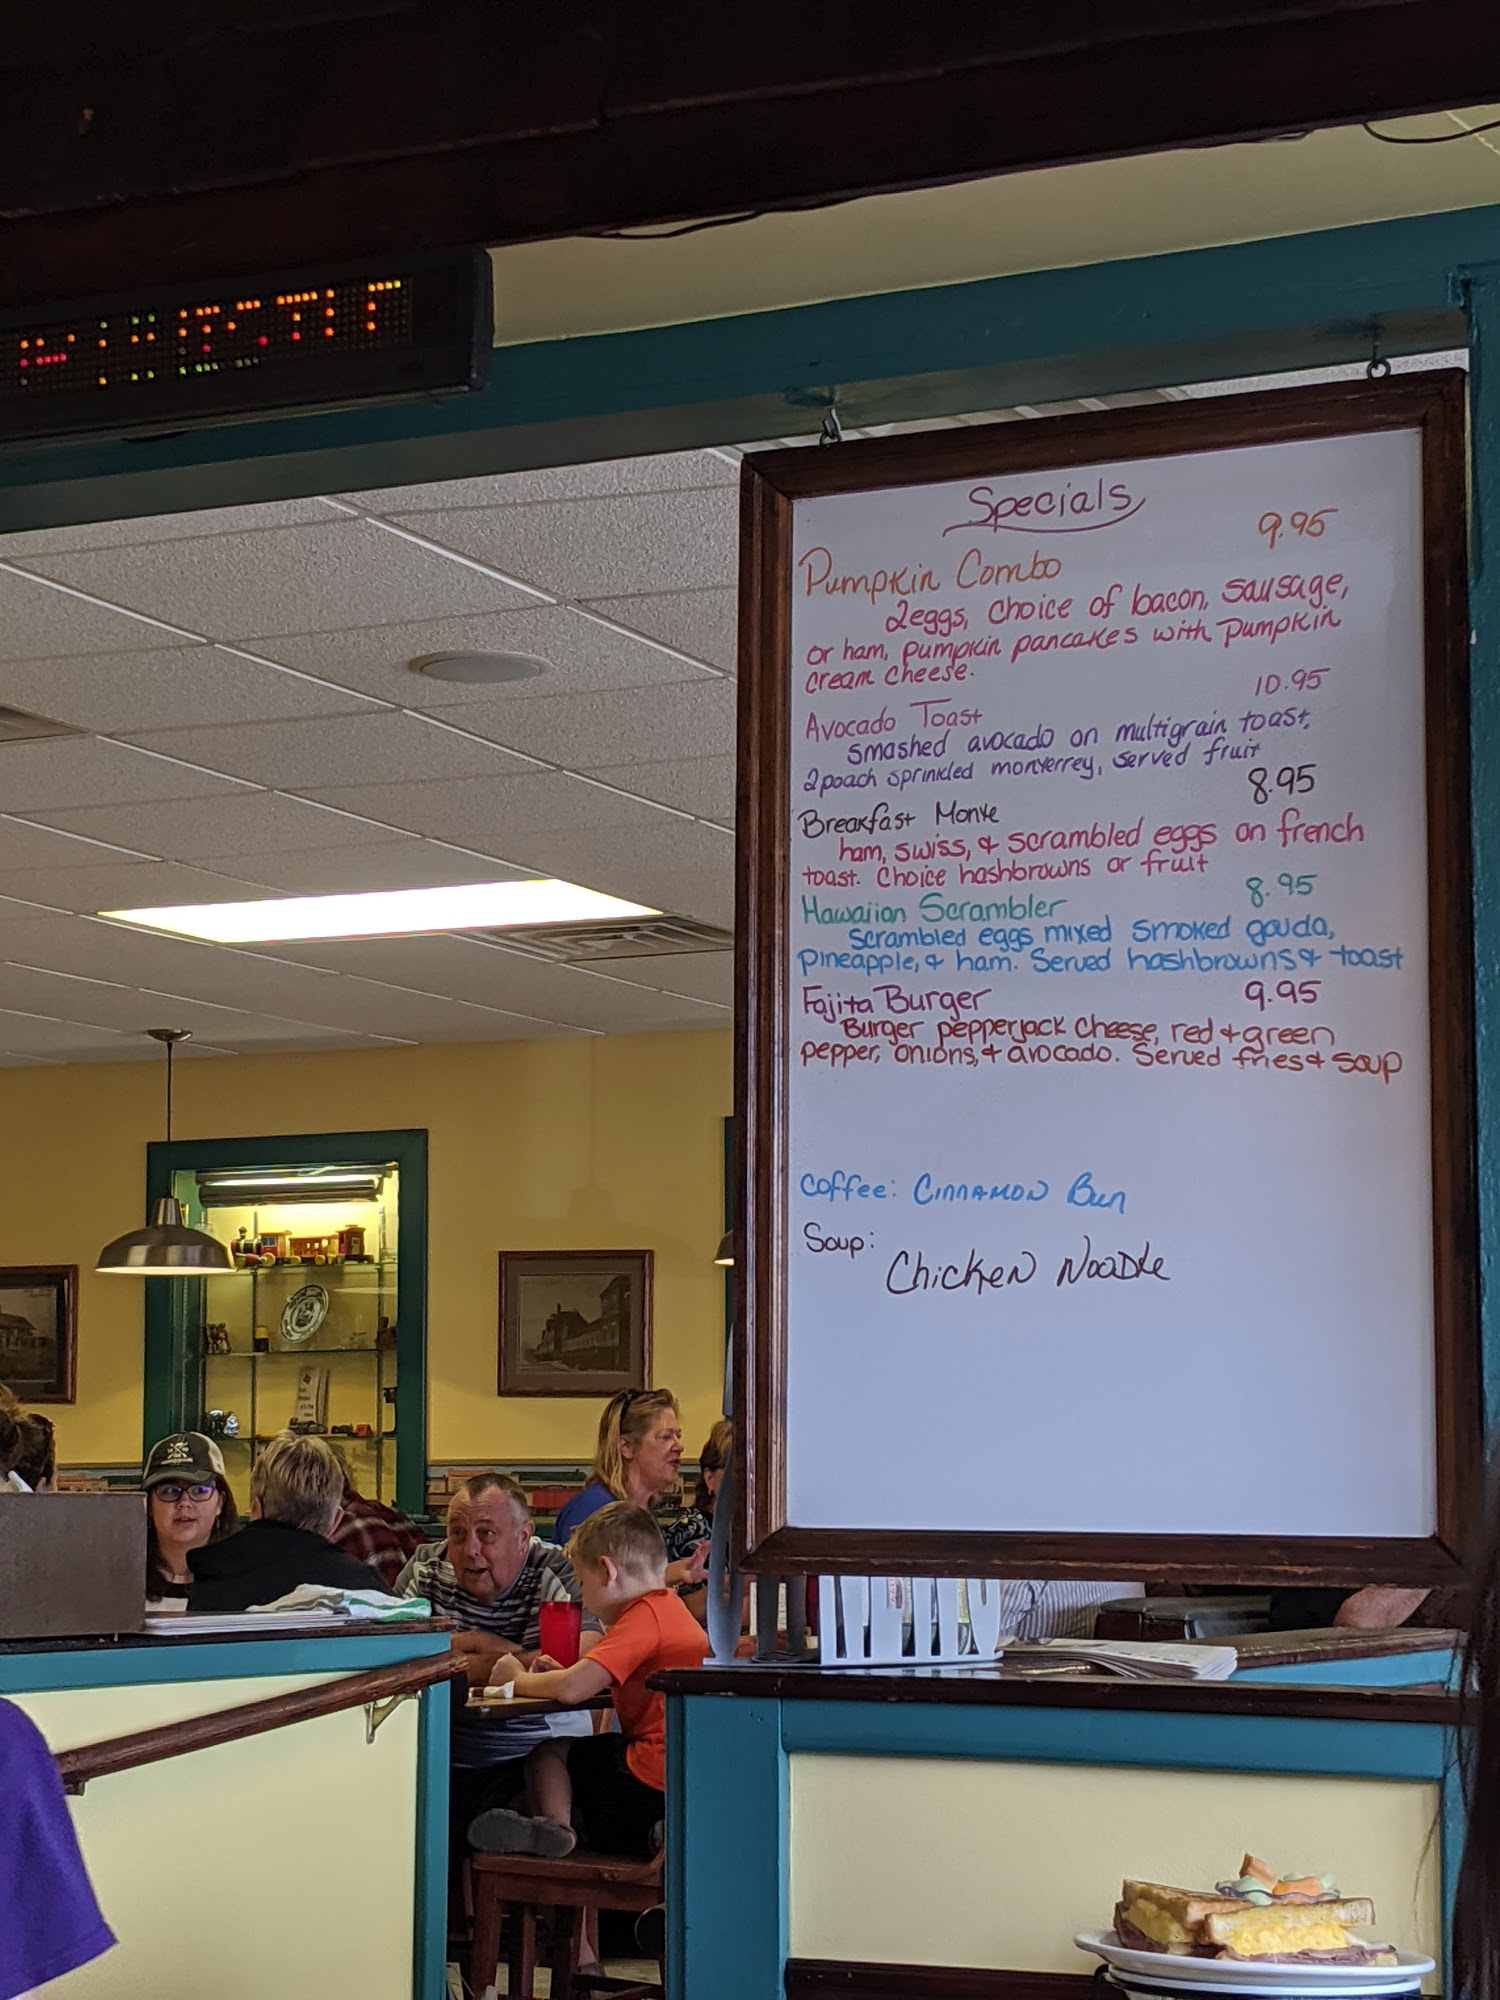 Specials
9.95
Pumpkin Combo
2eggs, choice of bacon, sausage,
or ham, pumpkin pancakes with pumpkin
cream cheese.
10.95
Avocado Toast
smashed avocado on multigrain toast.
2poach sprinkled monterrey, served fruit
8.95
Breakfast Monte
ham, swiss, & scrambled eggs on french
toast. Choice hashbrowns or fruit
8.95
Hawaiion Scrambler
scrambled eggs mixed smoked gouda,
pineapple, & ham. Served hashbrowns & toast
Fajita Burger 9.95
Burger pepperjack cheese, red & green
pepper, onions, & avocado. Served fries & soup
Coffee: Cinnamon Bun
Soup:
Chicken Noodle